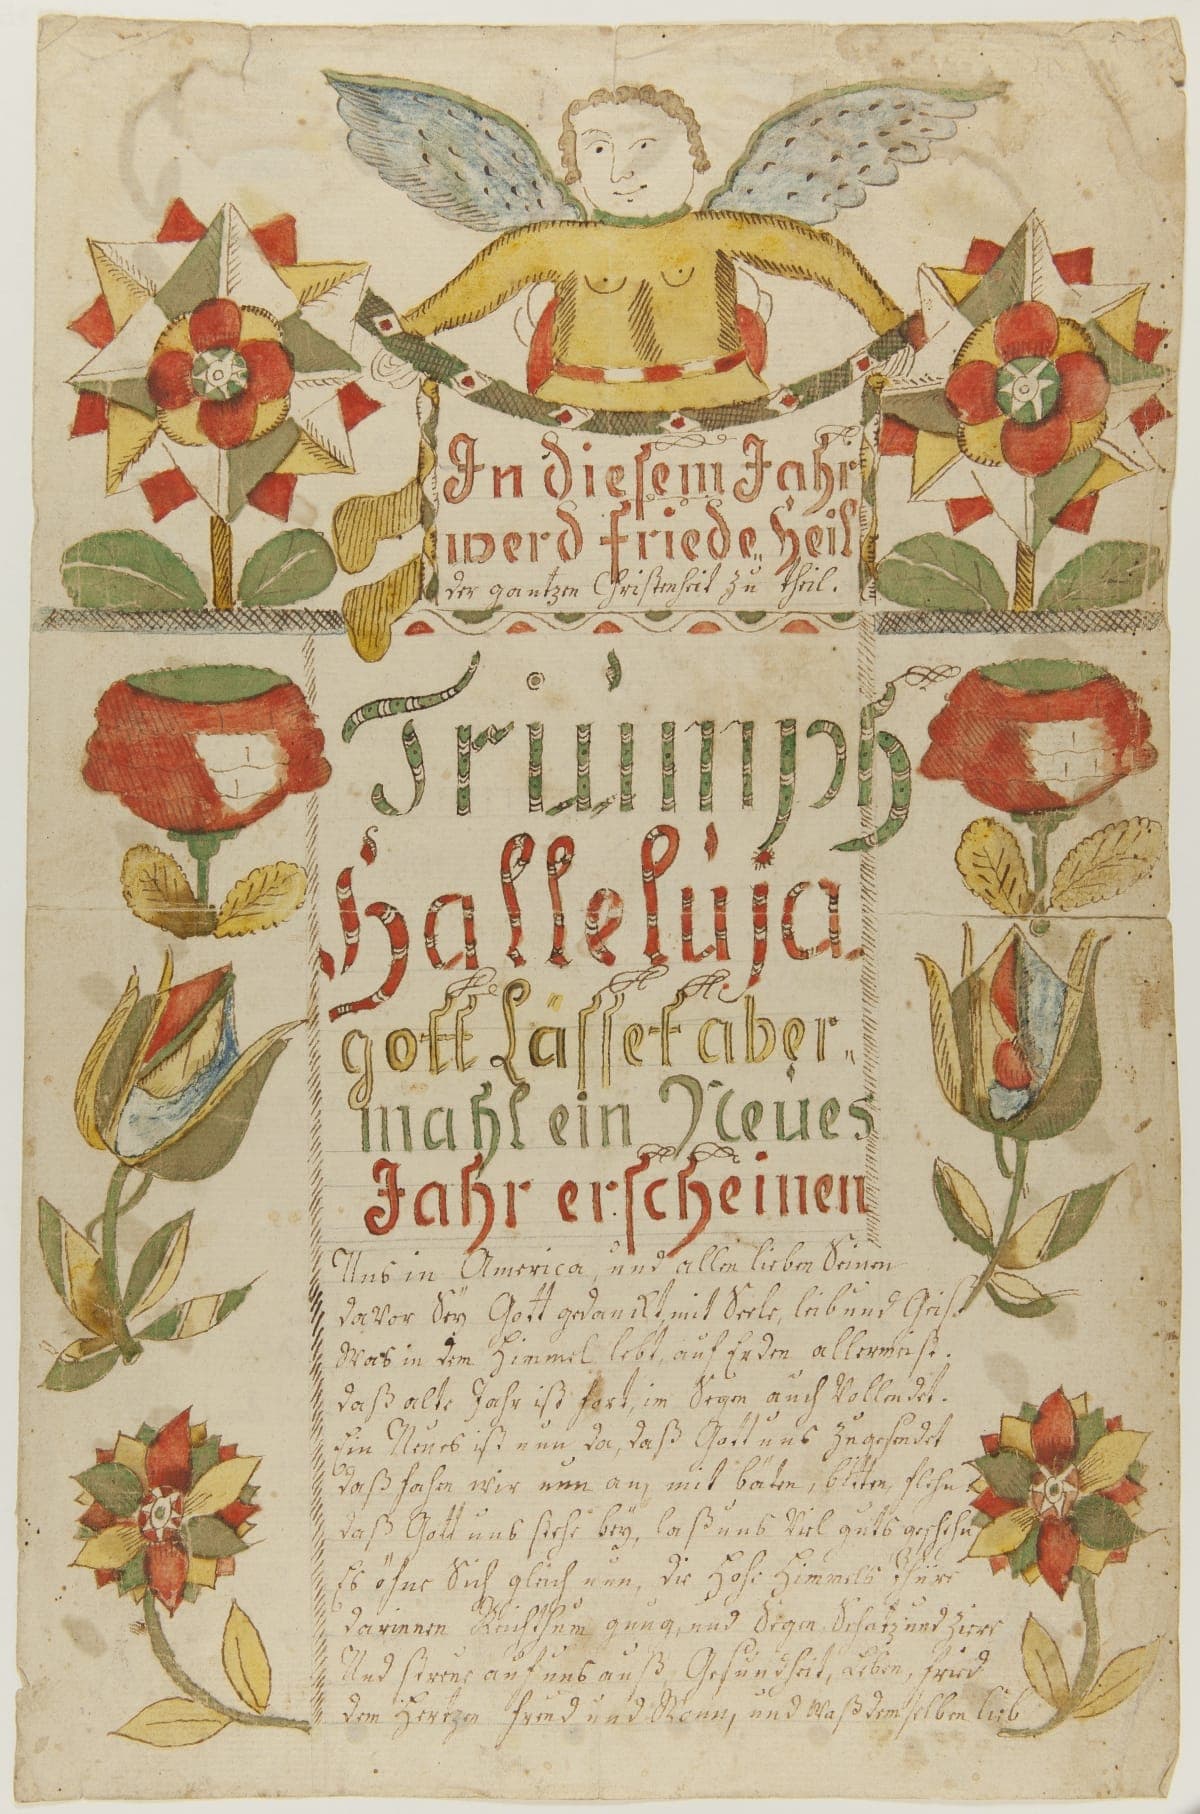 In diesem Jahr
werd friede, Heil
der gantzen Christenheit zu theil.
Triumph
Halleluja
gott Lässet aber„
mahl ein Neues
Jahr erscheinen
Uns in America, und allen lieben Seinen
davor Seÿ Gott gedanckt, mit Seele, leib und Geist
Was in dem Himmel lebt, auf Erden allermeist.
daß alte Jahr ist fort, im Segen auch Vollendet.
Ein Neues ist nun da, daß Gott uns zugesendet
daß fahen wir nun an, mit bäten, bitten, flehn
daß Gott uns stehe beÿ, laß uns Viel guts geschehn
Es öfne Sich gleich nun, die Hohe Himmels Thüre
darinnen Reichthum gnug, und Segen Schatz und Ziere
Und streue auf uns auß Gesundheit, Leben, fried
dem Hertzen freud und Wonn, und waß demselben lieb